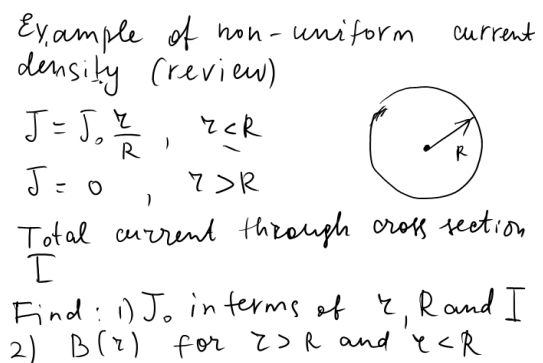 Example of non-uniform current
density (review)
J = J₀ r/R , r < R
J = 0 , r > R
R
Total current through cross section
I
Find: 1) J₀ in terms of r, R and I
2) B(r) for r > R and r < R